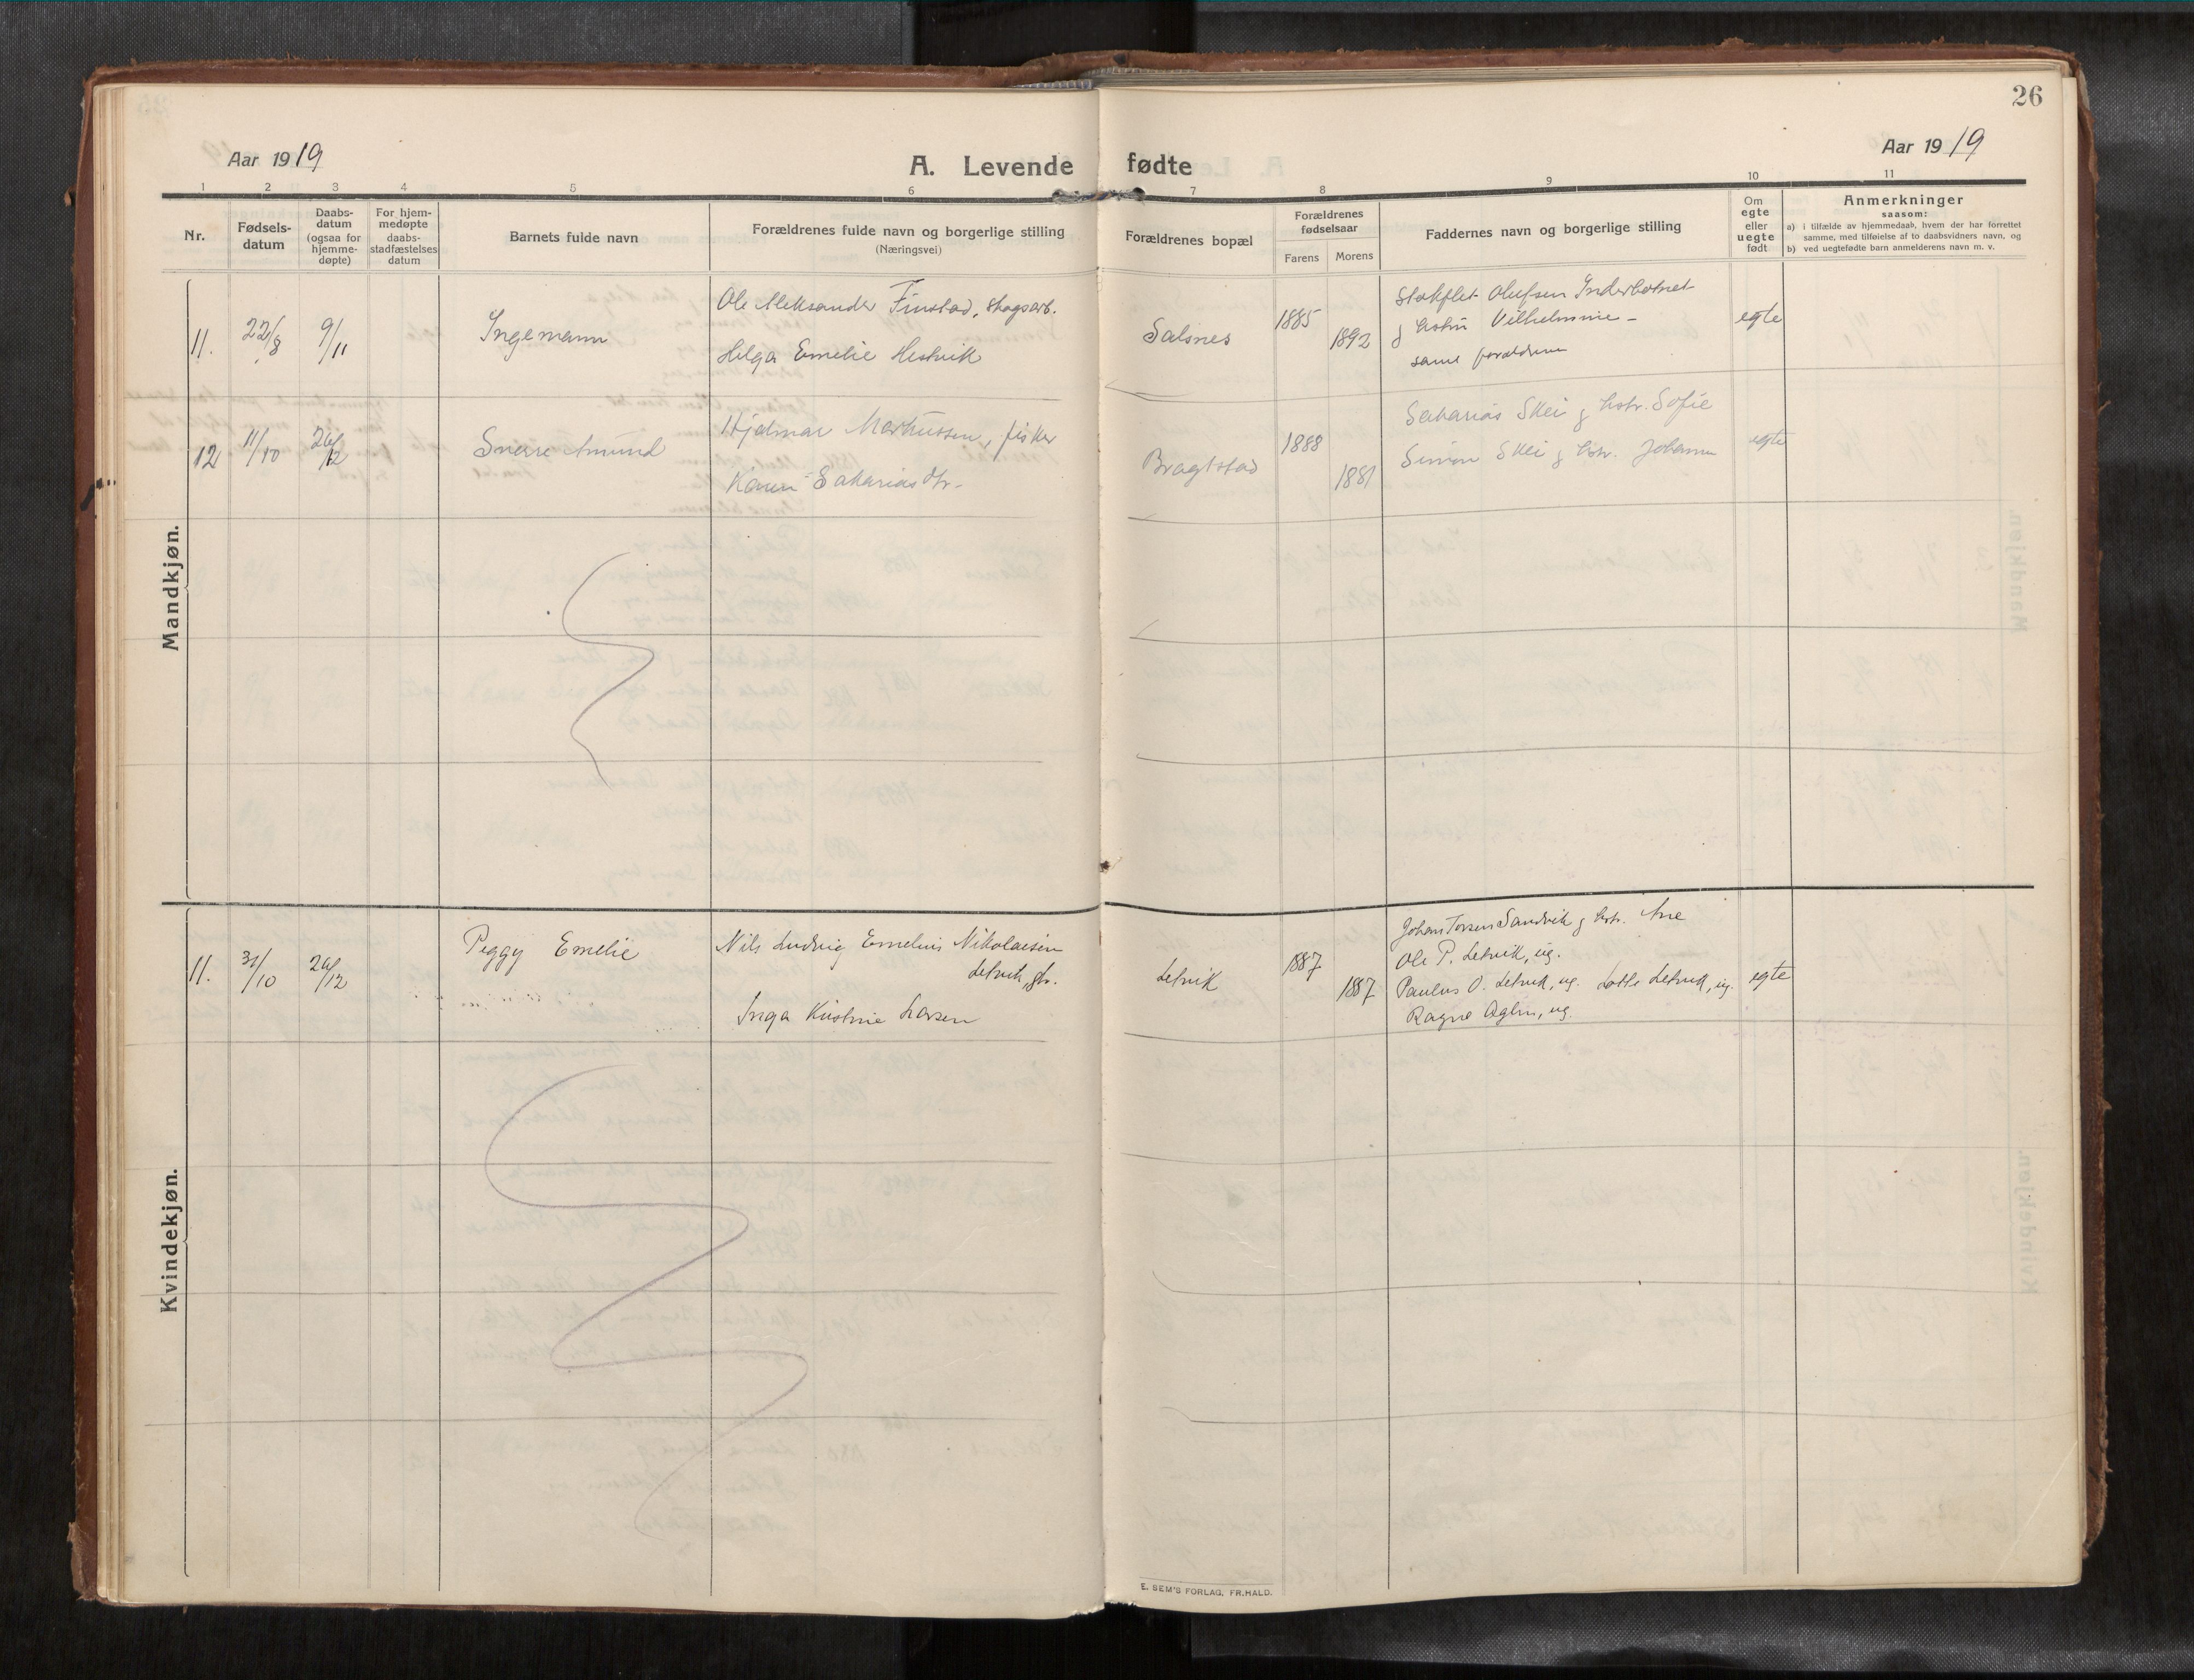 26
Aar 1919
A. Levende fødte
Aar 1919
1 2 3 4 5 6 7 8 9 10 11
Nr.
Fødsels-
datum
Daabs-
datum
(ogsaa for
hjemme-
døpte)
For hjem-
medøpte
daabs-
stadfæstelses
datum
Barnets fulde navn
Forældrenes fulde navn og borgerlige stilling
(Næringsvei)
Forældrenes bopæl
Forældrenes
fødselsaar
Farens Morens
Faddernes navn og borgerlige stilling
Om
egte
eller
uegte
født
Anmerkninger
saasom:
a) i tilfælde av hjemmedaab, hvem der har forrettet
samme, med tilføielse af to daabsvidners navn, og
b) ved uegtefødte barn anmelderens navn m. v.
Mandkjøn.
11. 22/8 9/11 Ingemann
Ole Aleksander Finstad, skogsarb.
Helga Emelie Hestvik
Salsnes 1885 1892
Stokflet Olufsen Inderbotnet
g hstru Vilhelmine -
samt forældrene
egte
12 11/10 26/12 Sverre Amund
Hjalmar Markussen, fisker
Karen Sakariasdtr.
Bragtstad 1888 1881
Sakarias Skei g hstr. Sofie
Simon Skei g hstr. Johanna
egte
Kvindekjøn.
11. 31/10 26/12 Peggy Emelie
Nils Ludvig Emelius Nikolaisen
Letvik, gbr.
Inga Kristine Larsen
Letvik 1887 1887
Johan Torsen Sandvik g hstr. Ane
Ole P. Letvik, ug.
Paulus O. Letvik, ug. Lotte Letvik, ug.
Ragna Aglen, ug.
egte
E. SEM'S FORLAG, FR.HALD.